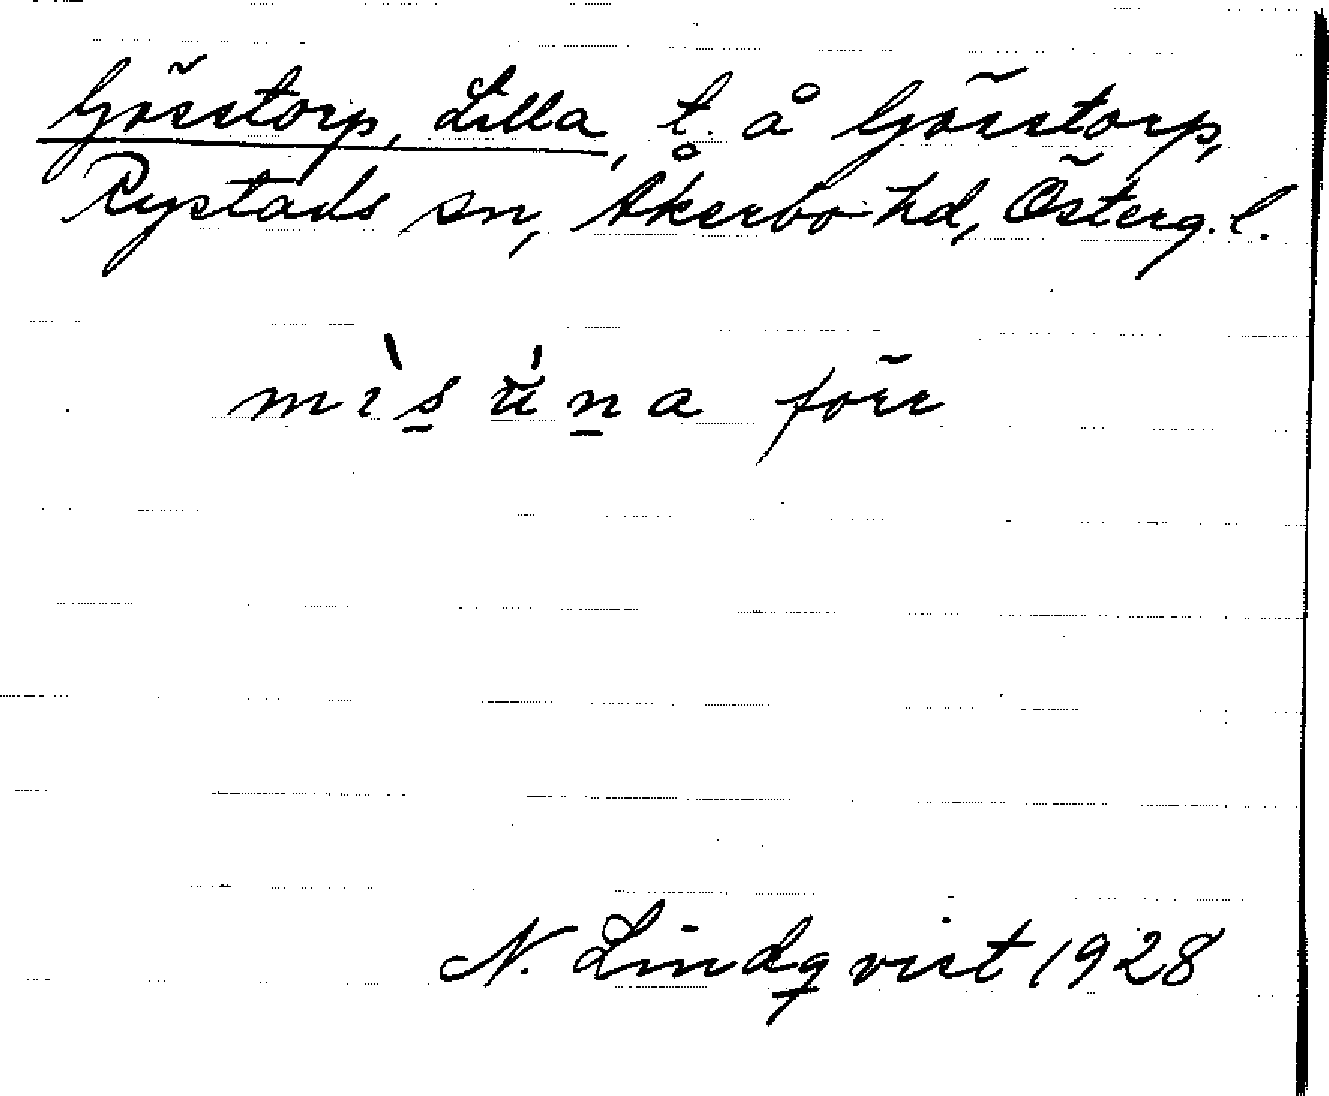 Görstorp, Lilla, t. å Görstorp,
Rystads sn, Åkerbo hd, Österg. l.
mìsúna förr
N. Lindqvist 1928